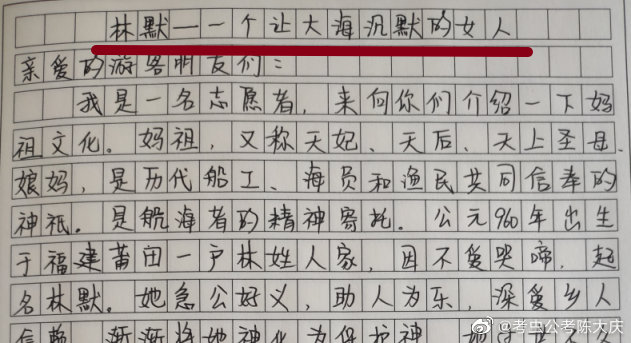 林默——一个让大海沉默的女人
亲爱的游客朋友们：
我是一名志愿者，来向你们介绍一下妈
祖文化。妈祖，又称天妃、天后、天上圣母、
娘妈，是历代船工、海员和渔民共同信奉的
神祇。是航海者的精神寄托。公元960年出生
于福建莆田一户林姓人家，因不爱哭啼，起
名林默。她急公好义，助人为乐，深爱乡人
信赖 渐渐将她神化为保护神
@考虫公考陈大庆